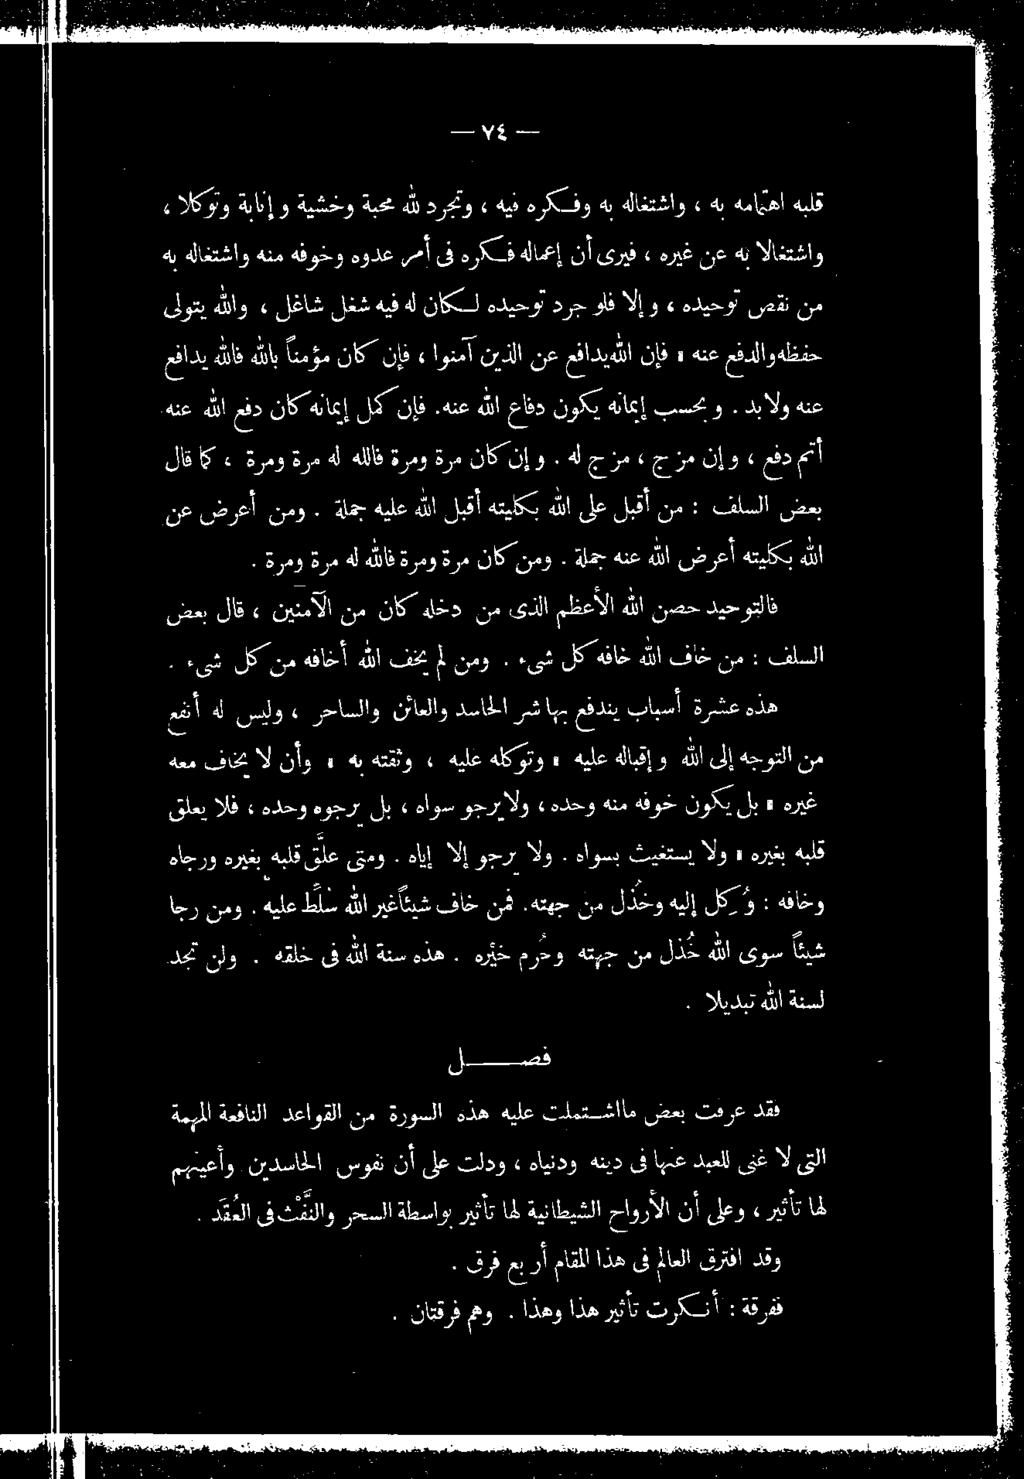 — ٧٤ —
قلبه اهتمامه به ، واشتغاله به وفكره فيه ، وتجرد لله محبة وخشية وإنابة وتوكلا ،
واشتغالا به عن غيره ، فيرى أن إعماله فكره فى أمر عدوه وخوفه منه واشتغاله به
من نقص توحيده ، وإلا فلو جرد توحيده لكان له فيه شغل شاغل ، والله يتولى
حفظه والدفع عنه ، فإن الله يدافع عن الذين آمنوا ، فإن كان مؤمناً بالله فالله يدافع
عنه ولا بد . وبحسب إيمانه يكون دفاع الله عنه . فإن كمل إيمانه كان دفع الله عنه
أتم دفع ، وإن مزج ، مزج له . وإن كان مرة ومرة فالله له مرة ومرة ، كما قال
بعض السلف : من أقبل على الله بكليته أقبل الله عليه جملة . ومن أعرض عن
الله بكليته أعرض الله عنه جملة . ومن كان مرة ومرة فالله له مرة ومرة .
فالتوحيد حصن الله الأعظم الذى من دخله كان من الآمنين ، قال بعض
السلف : من خاف الله خافه كل شىء . ومن لم يخف الله أخافه من كل شىء .
هذه عشرة أسباب يندفع بها شر الحاسد والعائن والساحر ، وليس له أنفع
من التوجه إلى الله وإقباله عليه ، وتوكله عليه ، وثقته به ، وأن لا يخاف معه
غيره ، بل يكون خوفه منه وحده ، ولا يرجو سواه ، بل يرجوه وحده ، فلا يعلق
قلبه بغيره ، ولا يستغيث بسواه . ولا يرجو إلا إياه . ومتى علَّق قلبه بغيره ورجاه
وخافه : وُكِل إليه وخُذل من جهته . فمن خاف شيئاً غير الله سُلِّط عليه . ومن رجا
شيئاً سوى الله خُذل من جهته وحُرم خيْره . هذه سنة الله فى خلقه . ولن تجد
لسنة الله تبديلا .
فصــــل
فقد عرفت بعض ما اشتملت عليه هذه السورة من القواعد النافعة المهمة
التى لا غنى للعبد عنها فى دينه ودنياه ، ودلت على أن نفوس الحاسدين وأعينهم
لها تأثير ، وعلى أن الأرواح الشيطانية لها تأثير بواسطة السحر والنَّفْث فى العُقَد .
وقد افترق العالم فى هذا المقام أربع فرق .
ففرقة : أنكرت تأثير هذا وهذا . وهم فرقتان .